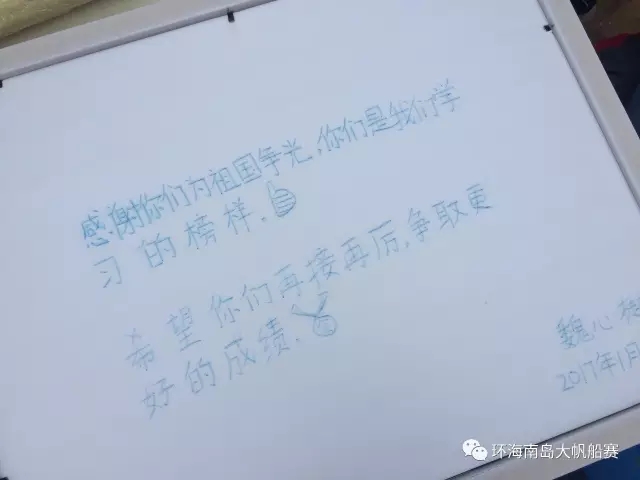 感谢你们为祖国争光，你们是我们学
习的榜样。
希望你们再接再厉，争取更
好的成绩。
魏心
2017年1月
环海南岛大帆船赛